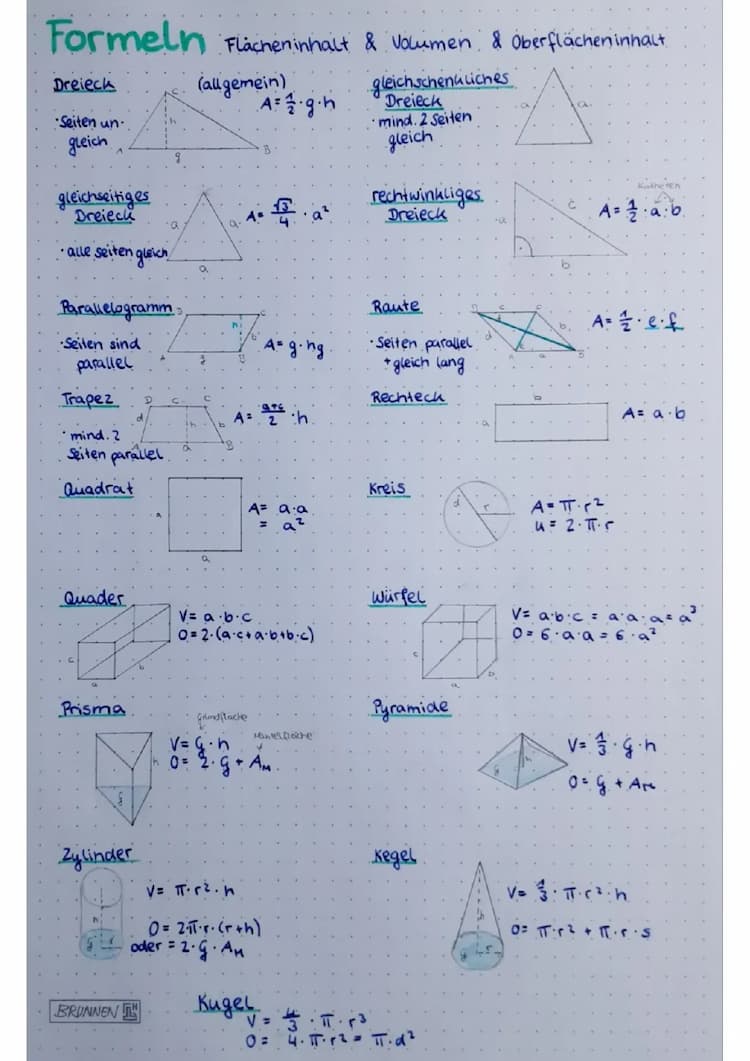 Formeln Flächeninhalt & Volumen & Oberflächeninhalt
Dreieck (allgemein)
• Seiten un-
gleich
A = 1/2 · g · h
A B C h g
gleichschenkliches
Dreieck
• mind. 2 Seiten
gleich
a a
gleichseitiges
Dreieck
• alle Seiten gleich
A = √3/4 · a²
a a a
rechtwinkliges
Dreieck
Katheten
A = 1/2 · a · b
a c b
Parallelogramm
• Seiten sind
parallel
A = g · hg
D C h b A g B
Raute
• Seiten parallel
+ gleich lang
A = 1/2 · e · f
D c C d b A a B
Trapez
• mind. 2
Seiten parallel
A = a+c/2 · h
D c C d h b A a B
Rechteck
A = a · b
b a
Quadrat
A = a · a
= a²
a a
Kreis
A = π · r²
u = 2 · π · r
d r
Quader
V = a · b · c
O = 2 · (a·c + a·b + b·c)
c a b
Würfel
V = a · b · c = a · a · a = a³
O = 6 · a · a = 6 · a²
c a b
Prisma
Grundfläche
Mantelfläche
V = G · h
O = 2 · G + AM
h G
Pyramide
V = 1/3 · G · h
O = G + AM
h G
Zylinder
V = π · r² · h
O = 2π · r · (r + h)
oder = 2 · G · AM
h G r
Kegel
V = 1/3 · π · r² · h
O = π · r² + π · r · s
h G r
BRUNNEN
Kugel
V = 4/3 · π · r³
O = 4 · π · r² = π · d²